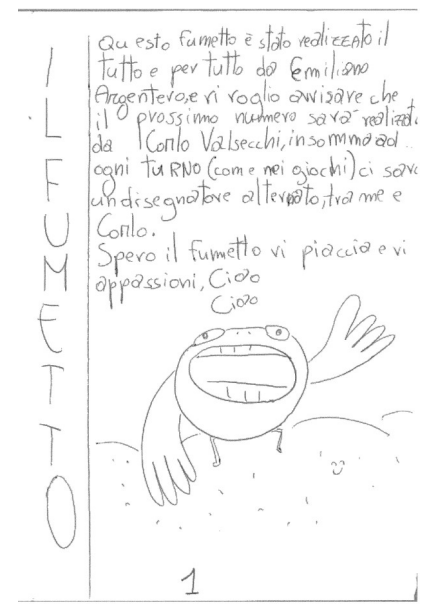 IL FUMETTO
Questo fumetto è stato realizzato il
tutto e per tutto da Emiliano
Argentero, e vi voglio avvisare che
il prossimo numero sarà realizzat
da Carlo Valsecchi, insomma ad
ogni tuRNO (come nei giochi) ci sarà
un disegnatore alternato, tra me e
Carlo.
Spero il fumetto vi piaccia e vi
appassioni, Ciao
Ciao
1